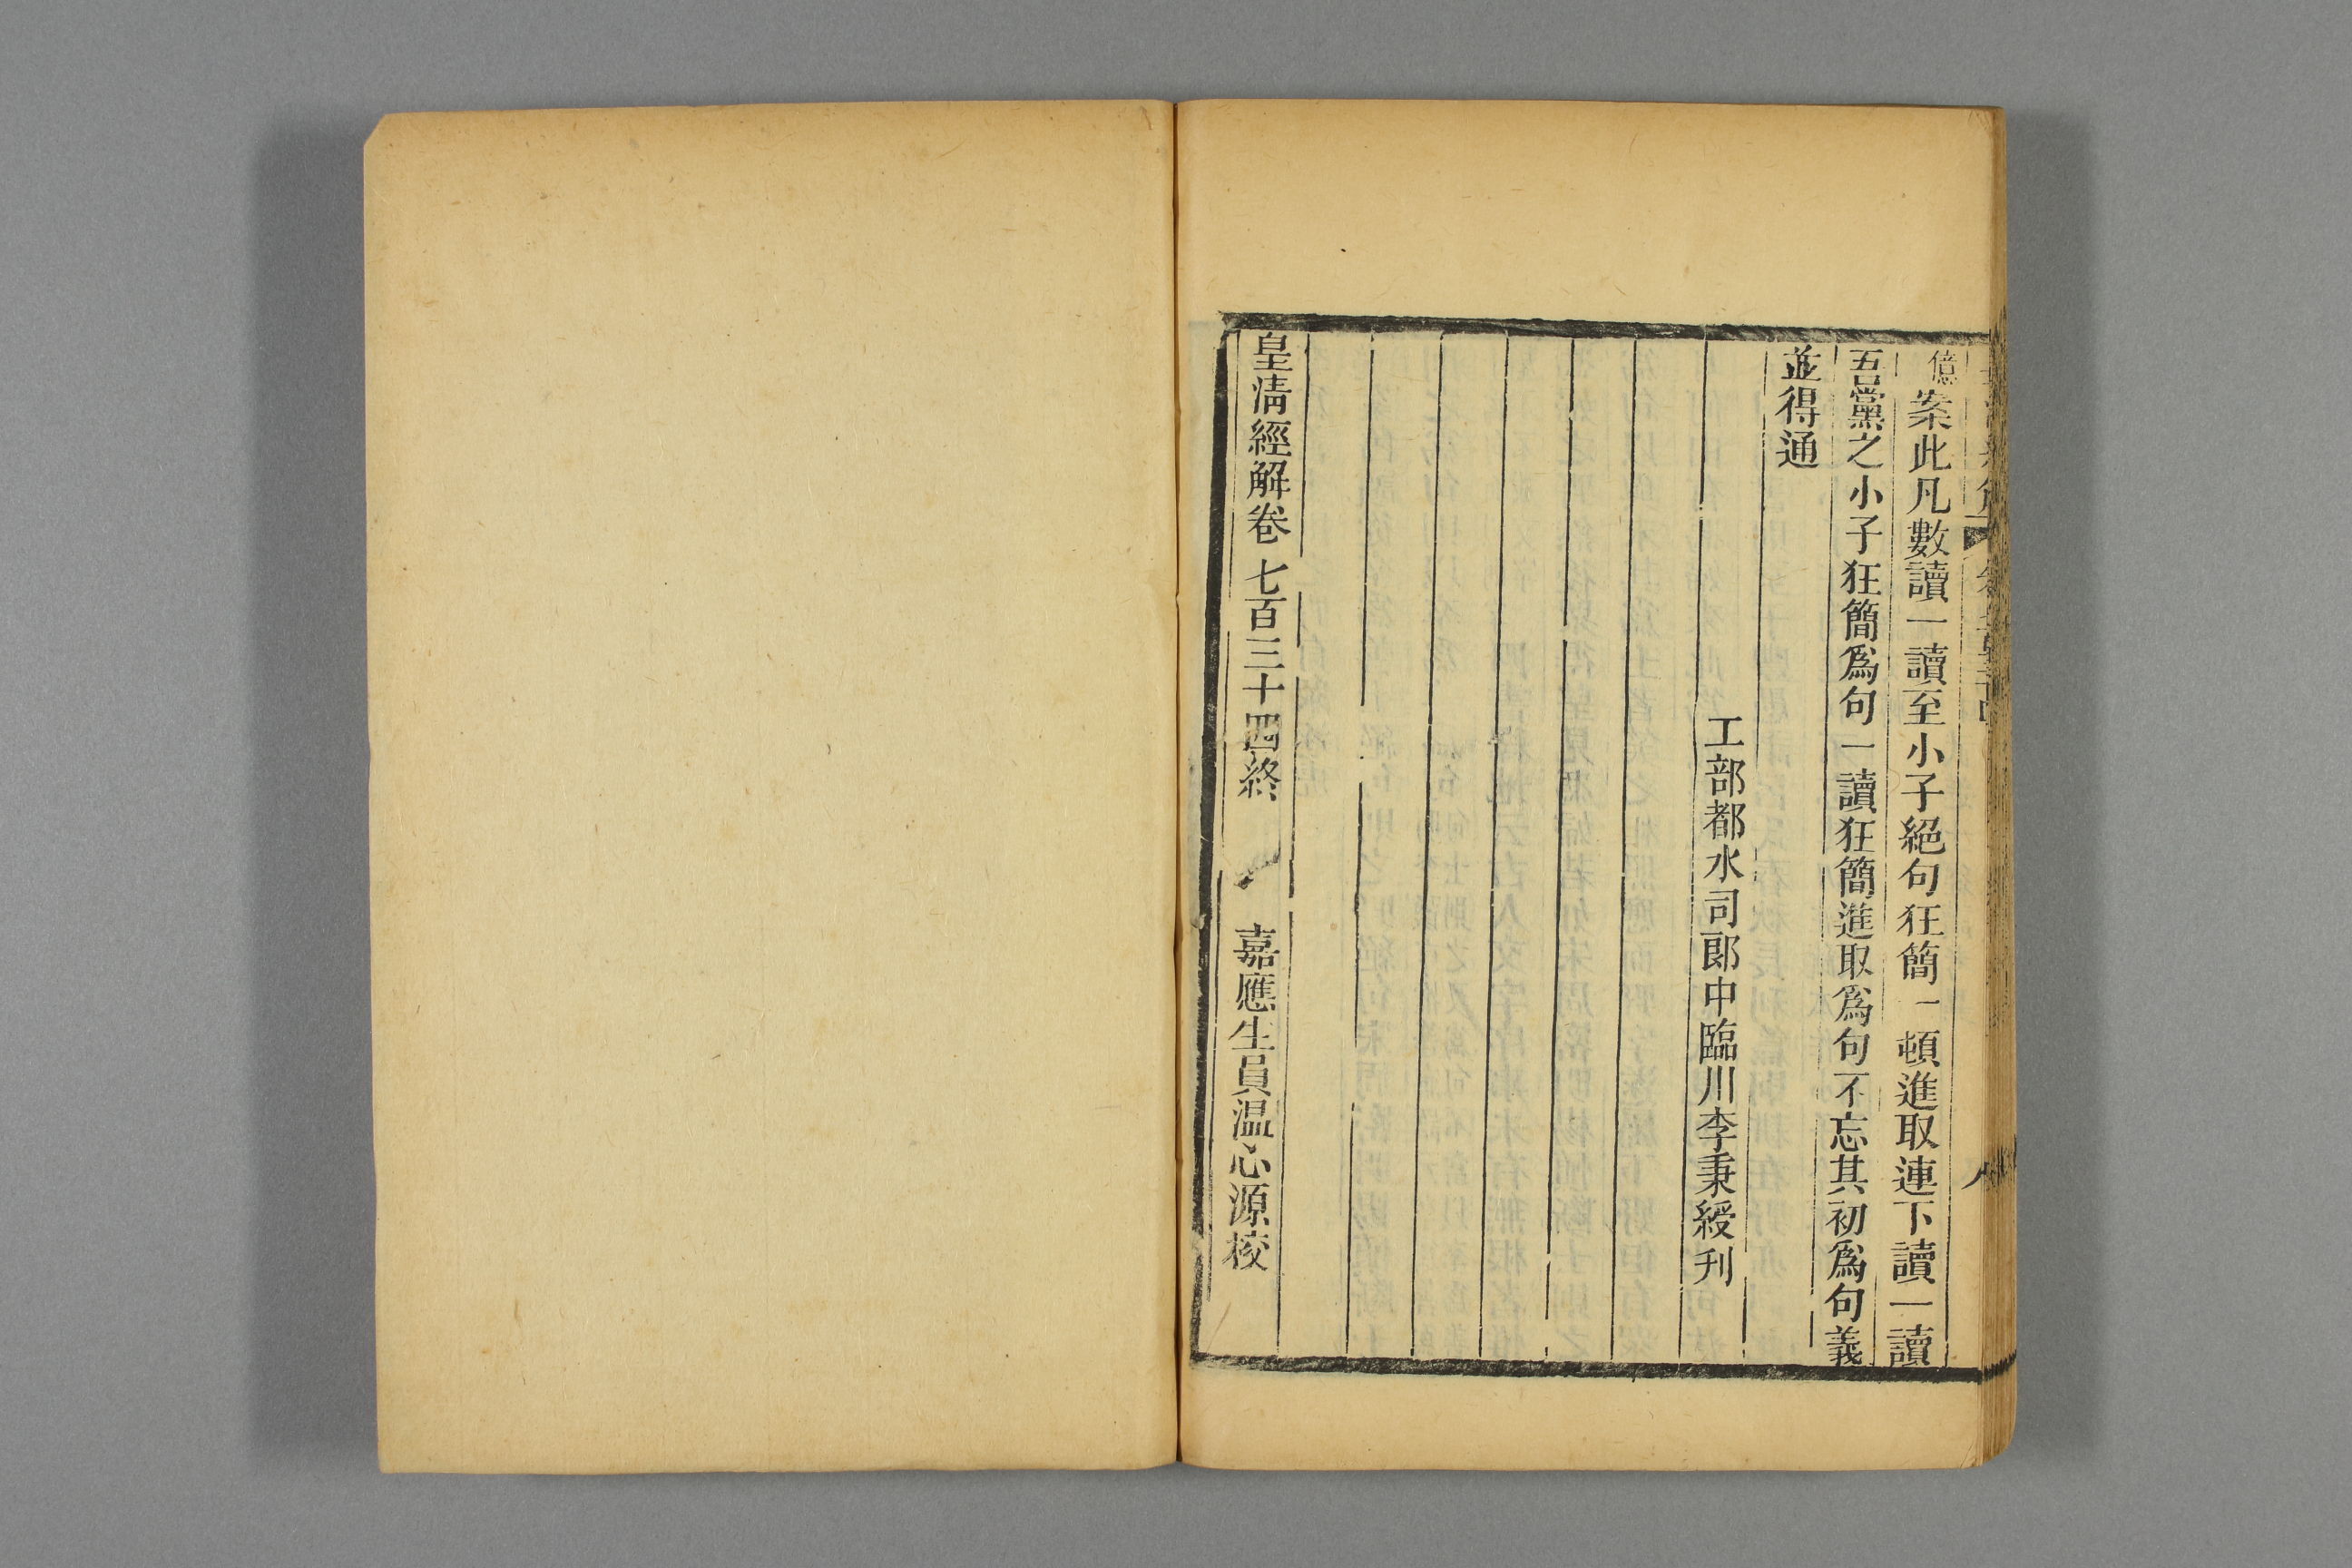 億案此凡數讀一讀至小子絕句狂簡一頓進取連下讀一讀
吾黨之小子狂簡爲句一讀狂簡進取爲句不忘其初爲句義
並得通
工部都水司郎中臨川李秉綬刋
皇淸經解卷七百三十四終 嘉應生員温心源校